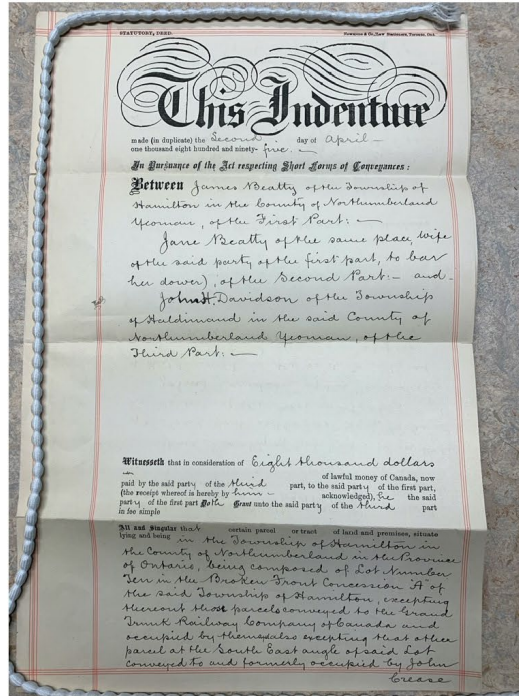 STATUTORY DEED.
Newsome & Co., Law Stationers, Toronto, Ont.
This Indenture
made (in duplicate) the Second day of April
one thousand eight hundred and ninety-five.
In Pursuance of the Act respecting Short Forms of Conveyances:
Between James Beatty of the Township of
Hamilton in the County of Northumberland
Yeoman, of the First Part:
Jane Beatty of the same place, wife
of the said party of the first part, to bar
her dower), of the Second Part:- and-
John H. Davidson of the Township
of Haldimand in the said County of
Northumberland Yeoman, of the
Third Part:-
Witnesseth that in consideration of Eight thousand dollars
of lawful money of Canada, now
paid by the said party of the third part, to the said party of the first part,
(the receipt whereof is hereby by him acknowledged), he the said
party of the first part Doth Grant unto the said party of the third part
in fee simple
All and Singular that certain parcel or tract of land and premises, situate
lying and being in the Township of Hamilton in
the County of Northumberland in the Province
of Ontario, being composed of Lot Number
Ten in the Broken Front Concession "A" of
the said Township of Hamilton, excepting
thereout those parcels conveyed to the Grand
Trunk Railway Company of Canada and
occupied by them, also excepting that other
parcel at the South East angle of said Lot
conveyed to and formerly occupied by John
Crease